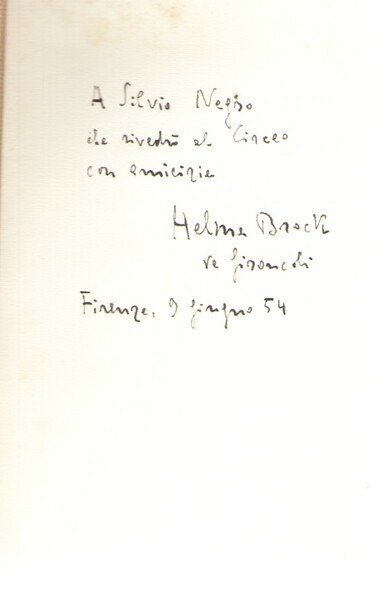 A Silvio Negro
che rivedrò al Circeo
con amicizia
Helma Brock
de Gironcoli
Firenze, 9 giugno 54